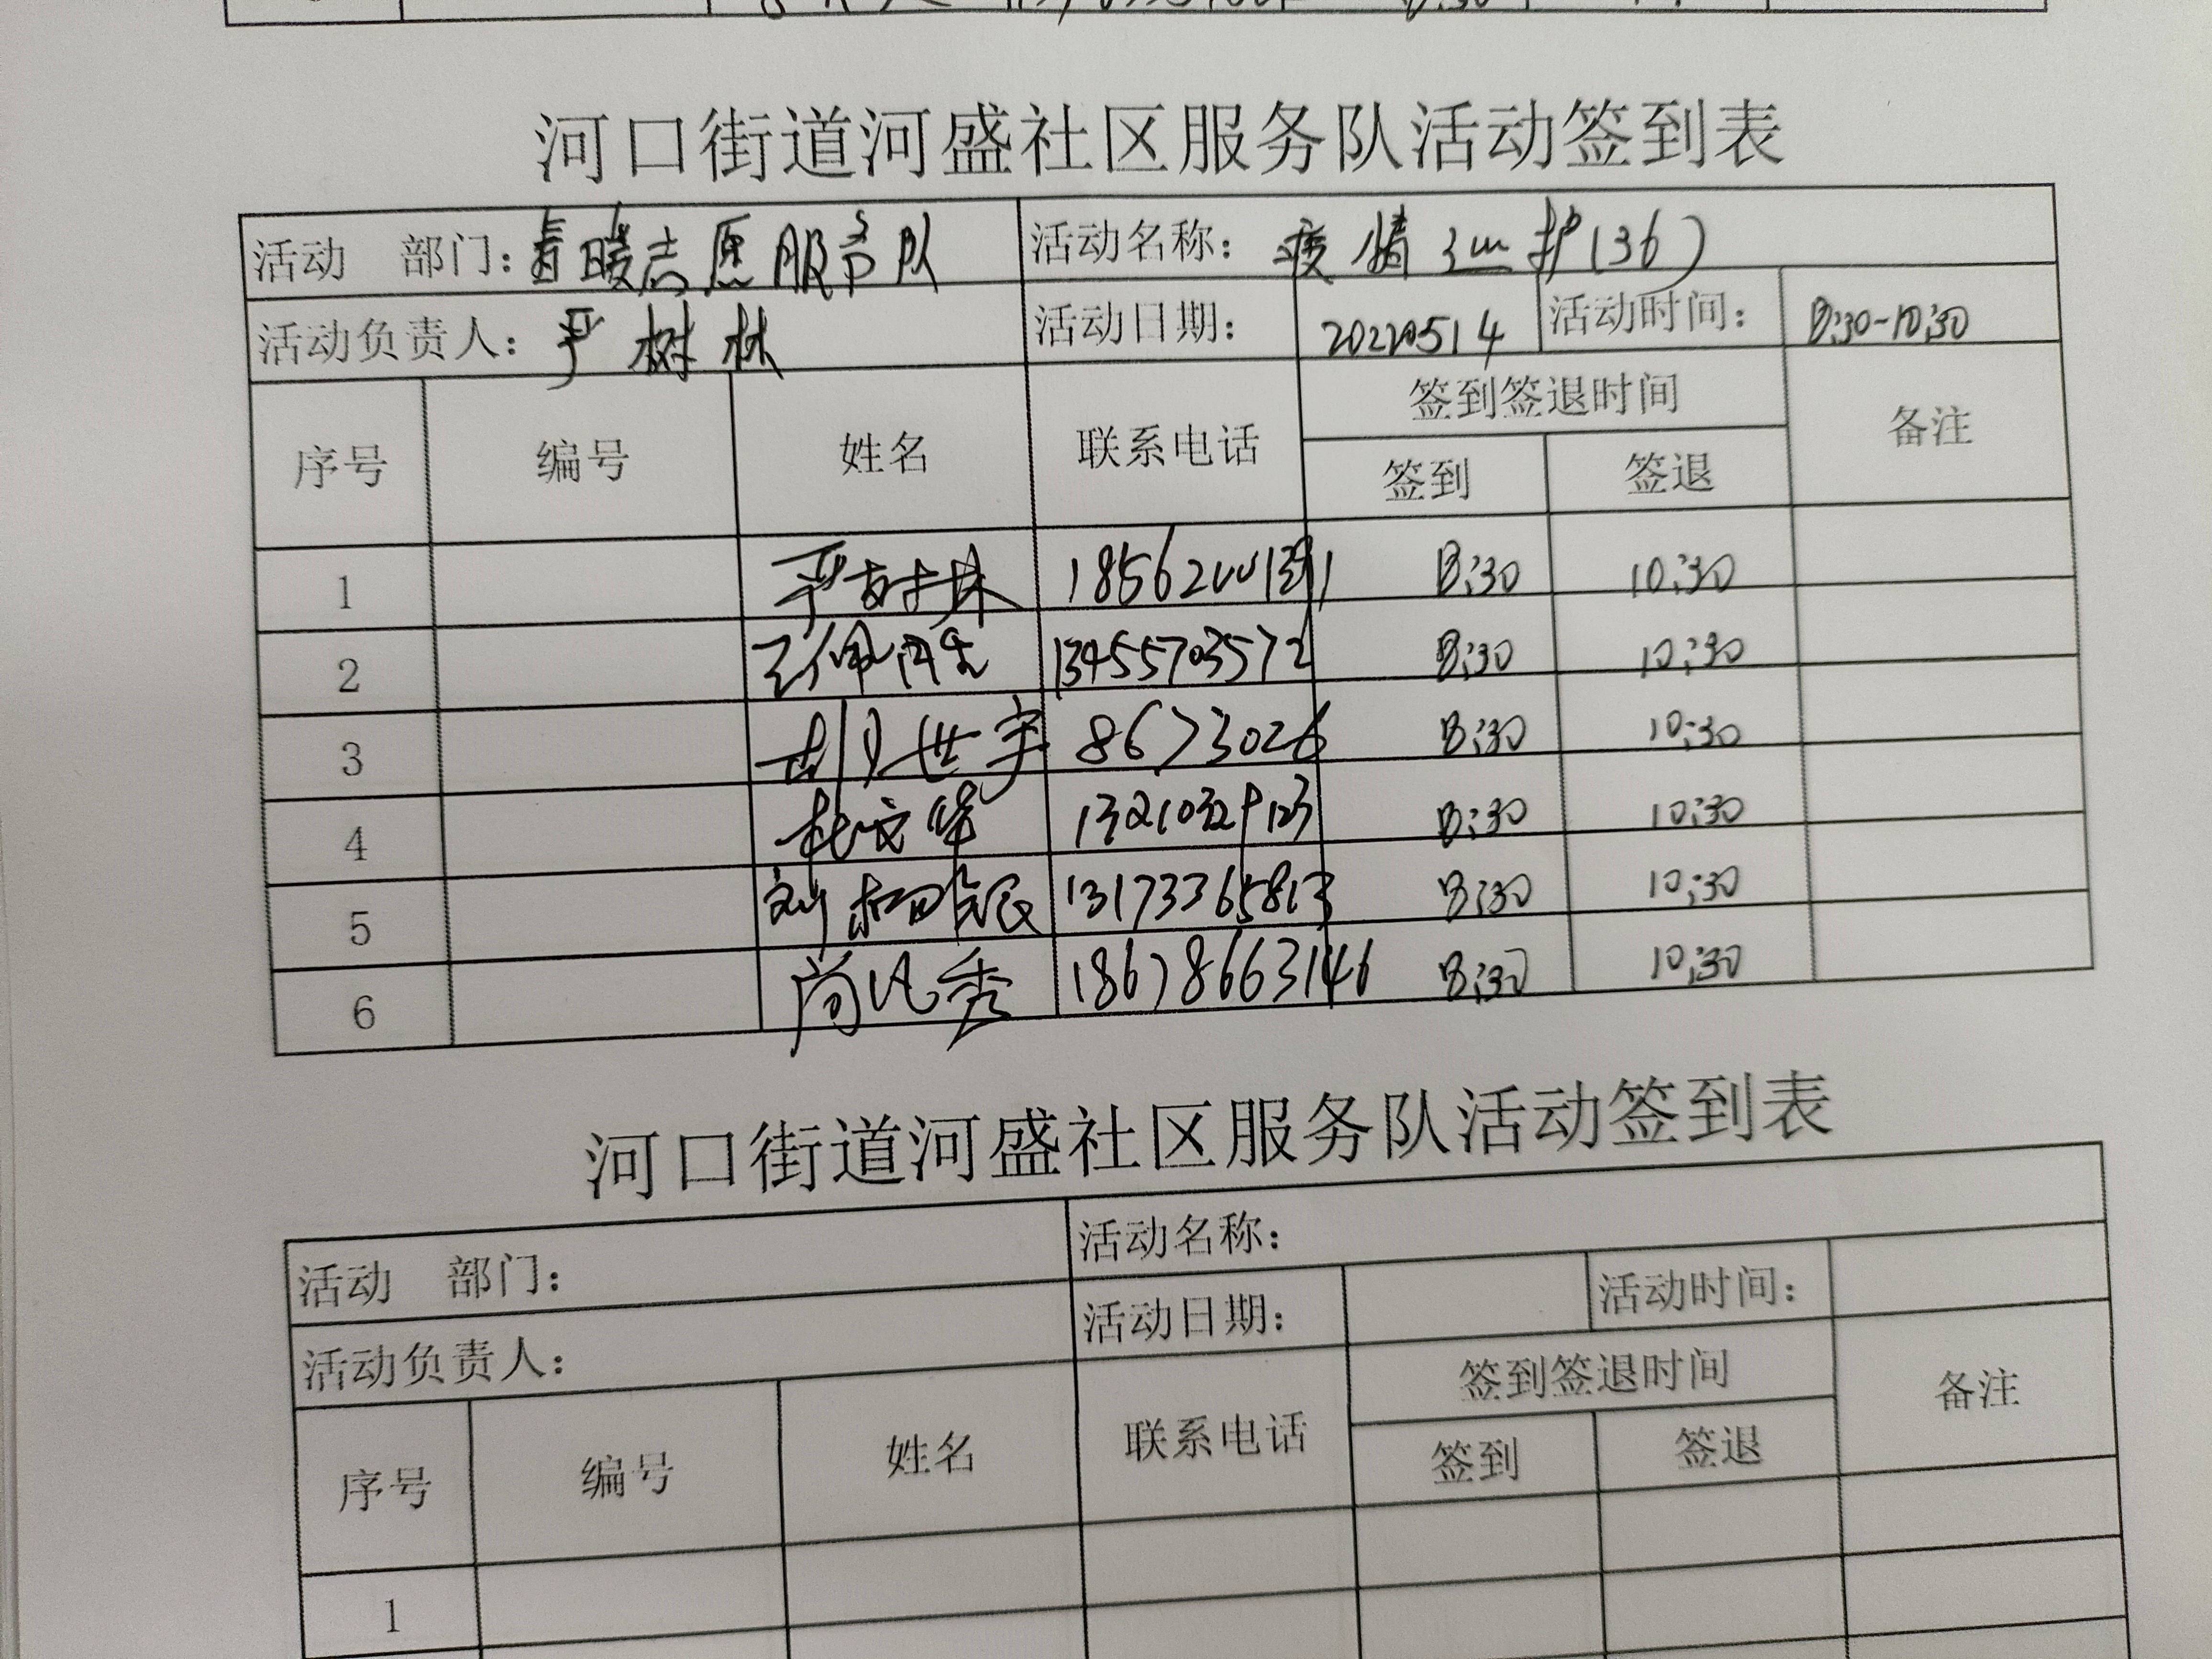 河口街道河盛社区服务队活动签到表
活动 部门: 春暖志愿服务队 活动名称: 疫情卫护(36)
活动负责人: 严树林 活动日期: 20220514 活动时间: 8:30-10:30
序号 编号 姓名 联系电话 签到签退时间 备注
签到 签退
1 严树林 8:30 10:30
2 13455703572 8:30 10:30
3 胡世宇 8673026 8:30 10:30
4 杜文华 8:30 10:30
5 13173365813 8:30 10:30
6 尚凡秀 18678663146 8:30 10:30
河口街道河盛社区服务队活动签到表
活动 部门: 活动名称:
活动负责人: 活动日期: 活动时间:
序号 编号 姓名 联系电话 签到签退时间 备注
签到 签退
1